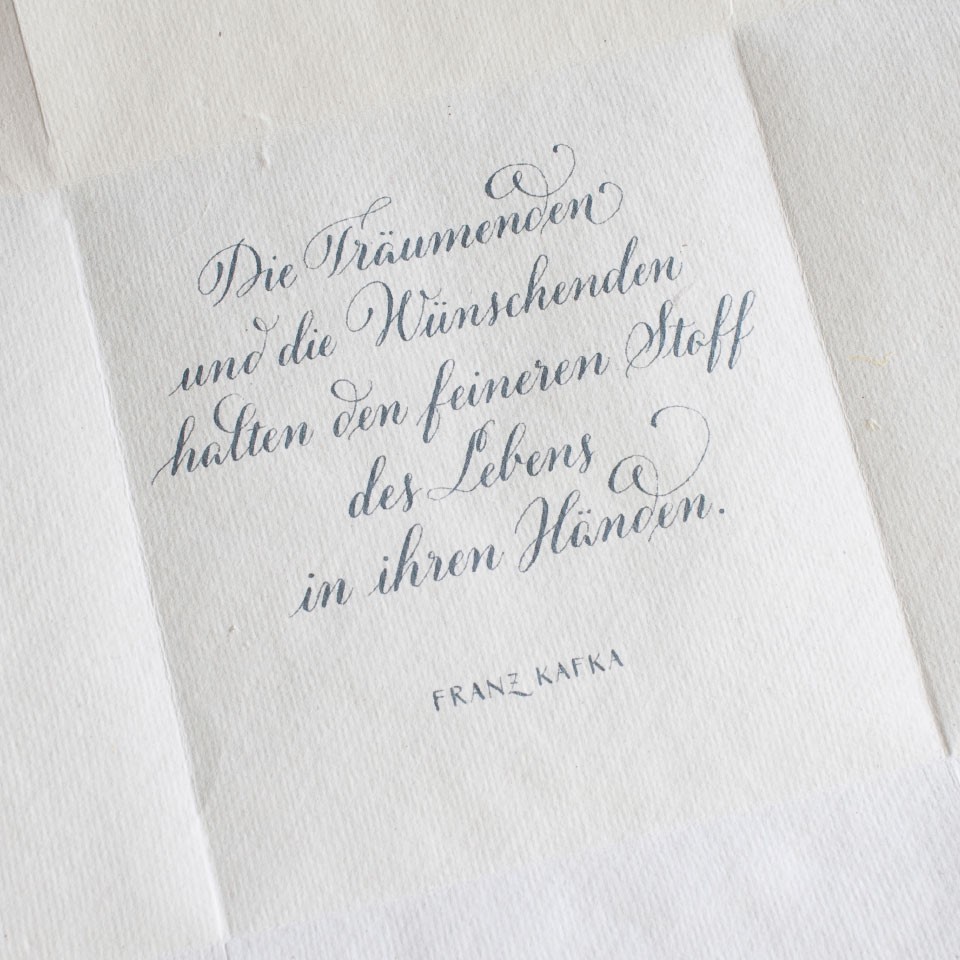 Die Träumenden
und die Wünschenden
halten den feineren Stoff
des Lebens
in ihren Händen.
FRANZ KAFKA